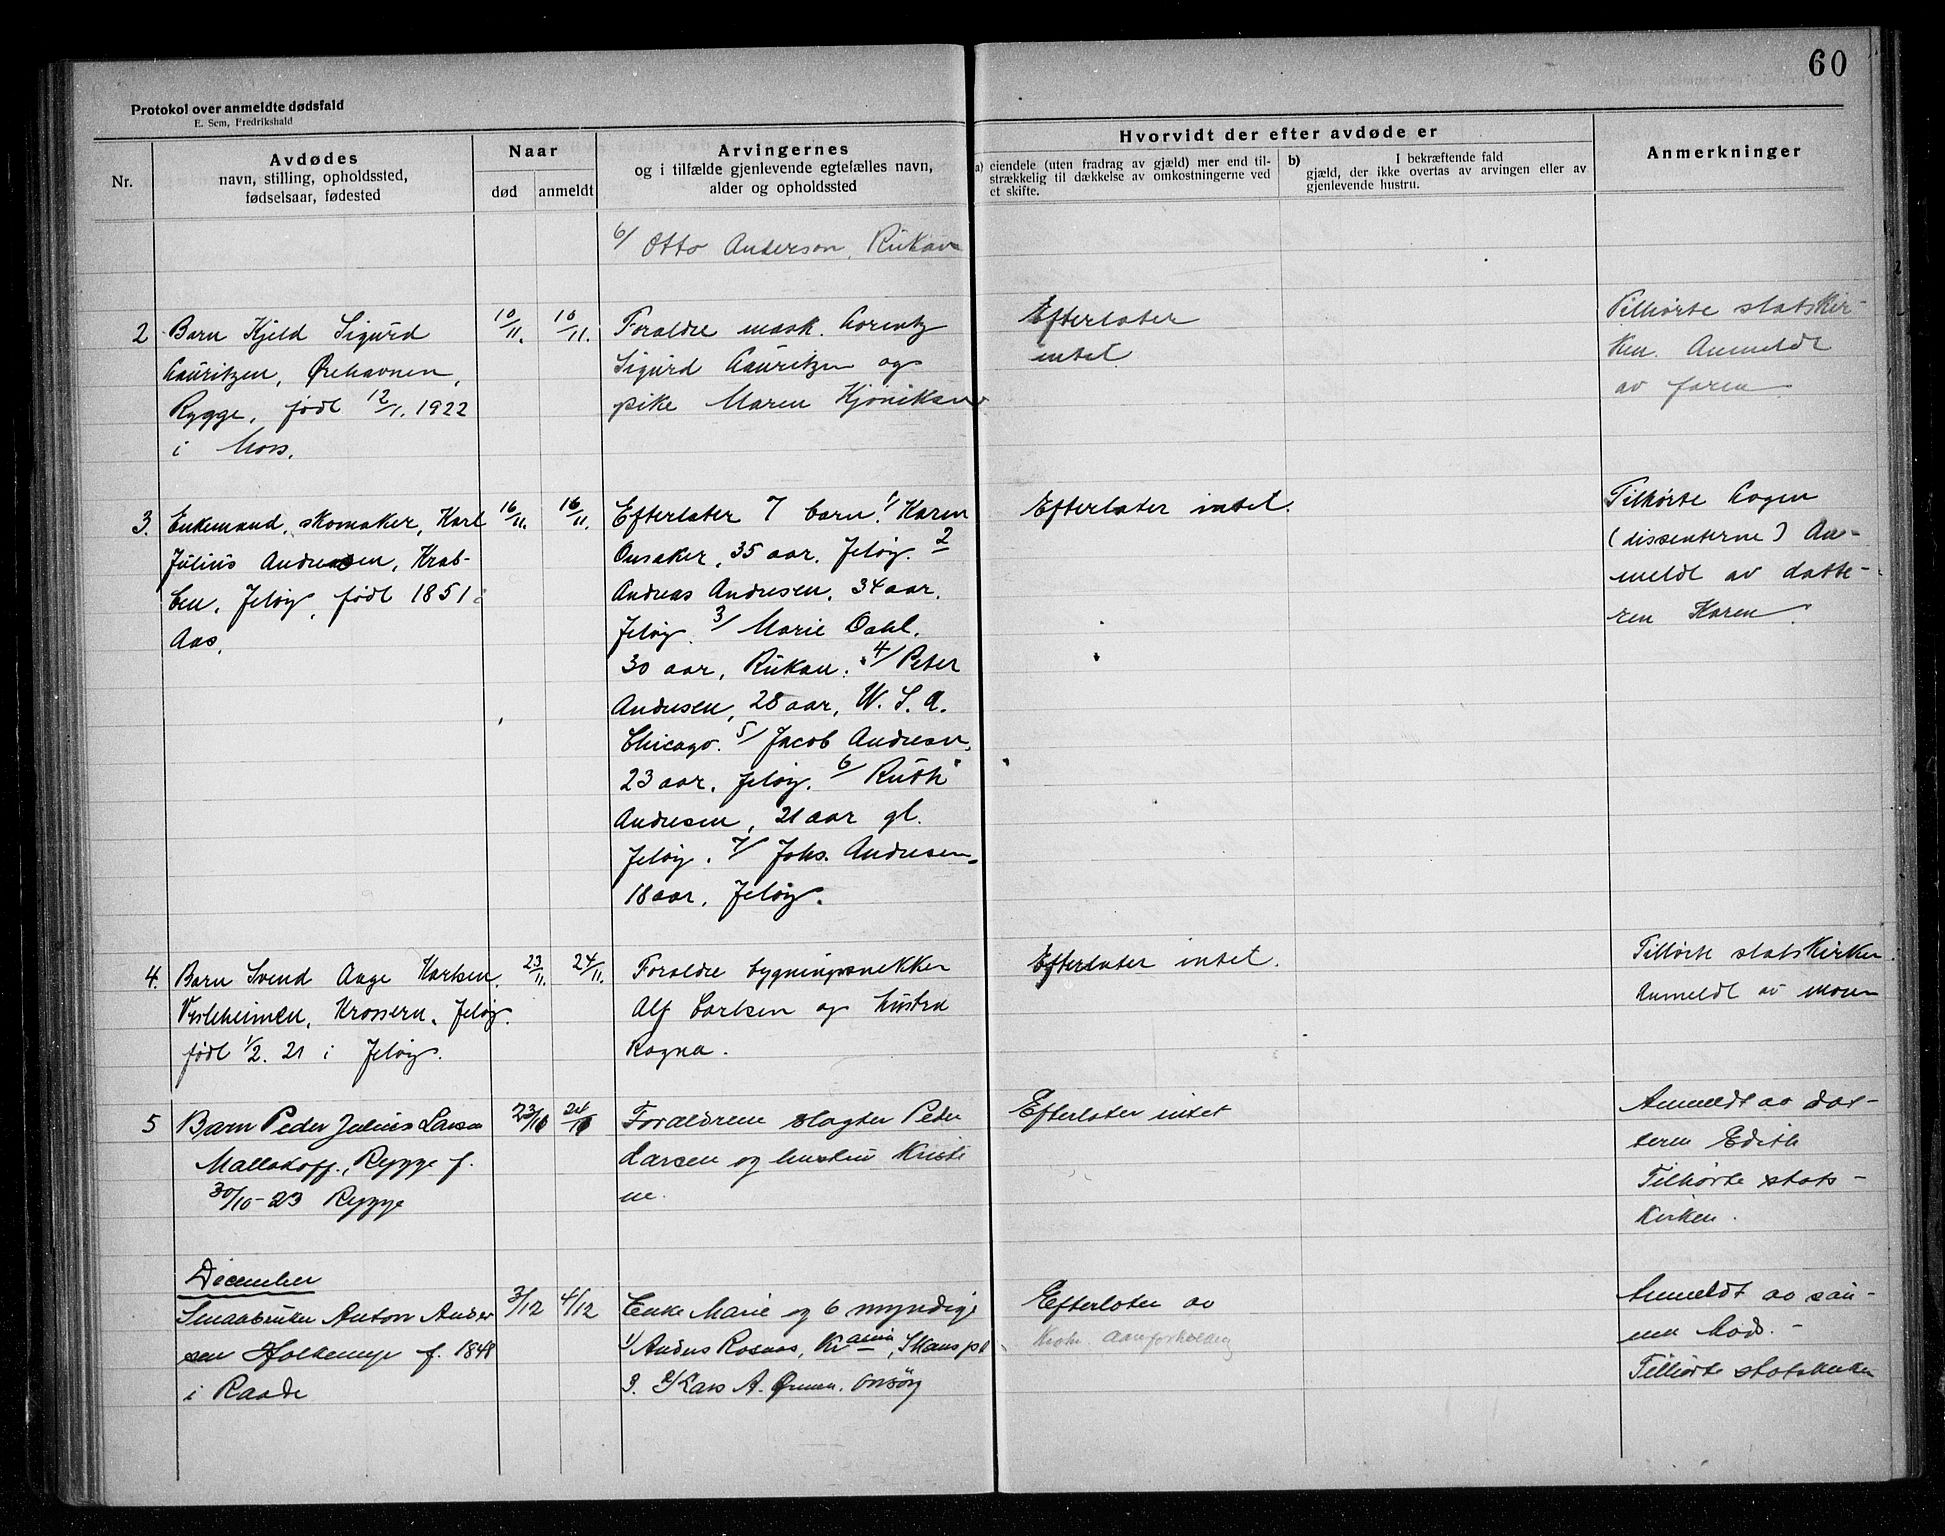 60
Protokol over anmeldte dødsfald
E. Sem, Fredrikshald
Nr.
Avdødes
navn, stilling, opholdssted,
fødselsaar, fødested
Naar
død
anmeldt
Arvingernes
og i tilfælde gjenlevende egtefælles navn,
alder og opholdssted
Hvorvidt der efter avdøde er
a) eiendele (uten fradrag av gjæld) mer end til-
strækkelig til dækkelse av omkostningerne ved
et skifte.
b) I bekræftende fald
gjæld, der ikke overtas av arvingen eller av
gjenlevende hustru.
Anmerkninger
6/ Otto Anderson, Rukan
2
Barn Kjeld Sigurd
Lauritzen, Ørehavnen,
Rygge, født 12/1. 1922
i Moss.
10/11.
10/11.
Foraldre mask. Lorentz
Sigurd Lauritzen og
pike Maren Kjøniksen
Efterlater
intet
Tilhørte statskir-
ken. Anmeldt
av faren
3.
Enkemand, skomaker, Karl
Julius Andreasen, Krab-
ben, Jeløy, født 1851 i
Aas.
16/11.
16/11.
Efterlater 7 barn. 1/ Karen
Onsaker, 35 aar. Jeløy. 2
Andreas Andresen, 34 aar,
Jeløy. 3/ Marie Dahl,
30 aar, Rukan. 4/ Peter
Andresen, 28 aar, U. S. A.
Chicago. 5/ Jacob Andresen,
23 aar, Jeløy. 6/ Ruth
Andresen, 21 aar gl.
Jeløy. 7/ Johs. Andresen,
18 aar, Jeløy.
Efterlater intet.
Tilhørte Logen
(dissenterne) An-
meldt av datte-
ren Karen.
4.
Barn Svend Aage Karlsen,
Vesleheimen, Krossern, Jeløy.
født 1/2. 21 i Jeløy.
23/11.
24/11.
Foraldre bygningssnekker
Alf Carlsen og hustru
Ragna.
Efterlater intet.
Tilhørte statskirken.
Anmeldt av moren
5
Barn Peder Julius Larsen
Mallakoff, Rygge f.
30/10-23 Rygge
23/11
24/11
Foraldrene slagter Peder
Larsen og hustru Kristi
ne.
Efterlater intet
Anmeldt av dat-
teren Edith
Tilhørte stats-
kirken.
December
Smaabruker Anton Ander
sen Holkemyr f. 1848
i Raade
3/12
4/12
Enke Marie og 6 myndige
1/ Anders Rosnæs, Kr ania, Skanspl
3. 2/ Kars A. Ørmen, Onsøy
Efterlater av
Anmeldt av søn-
nen Mads.-
Tilhørte statskirken